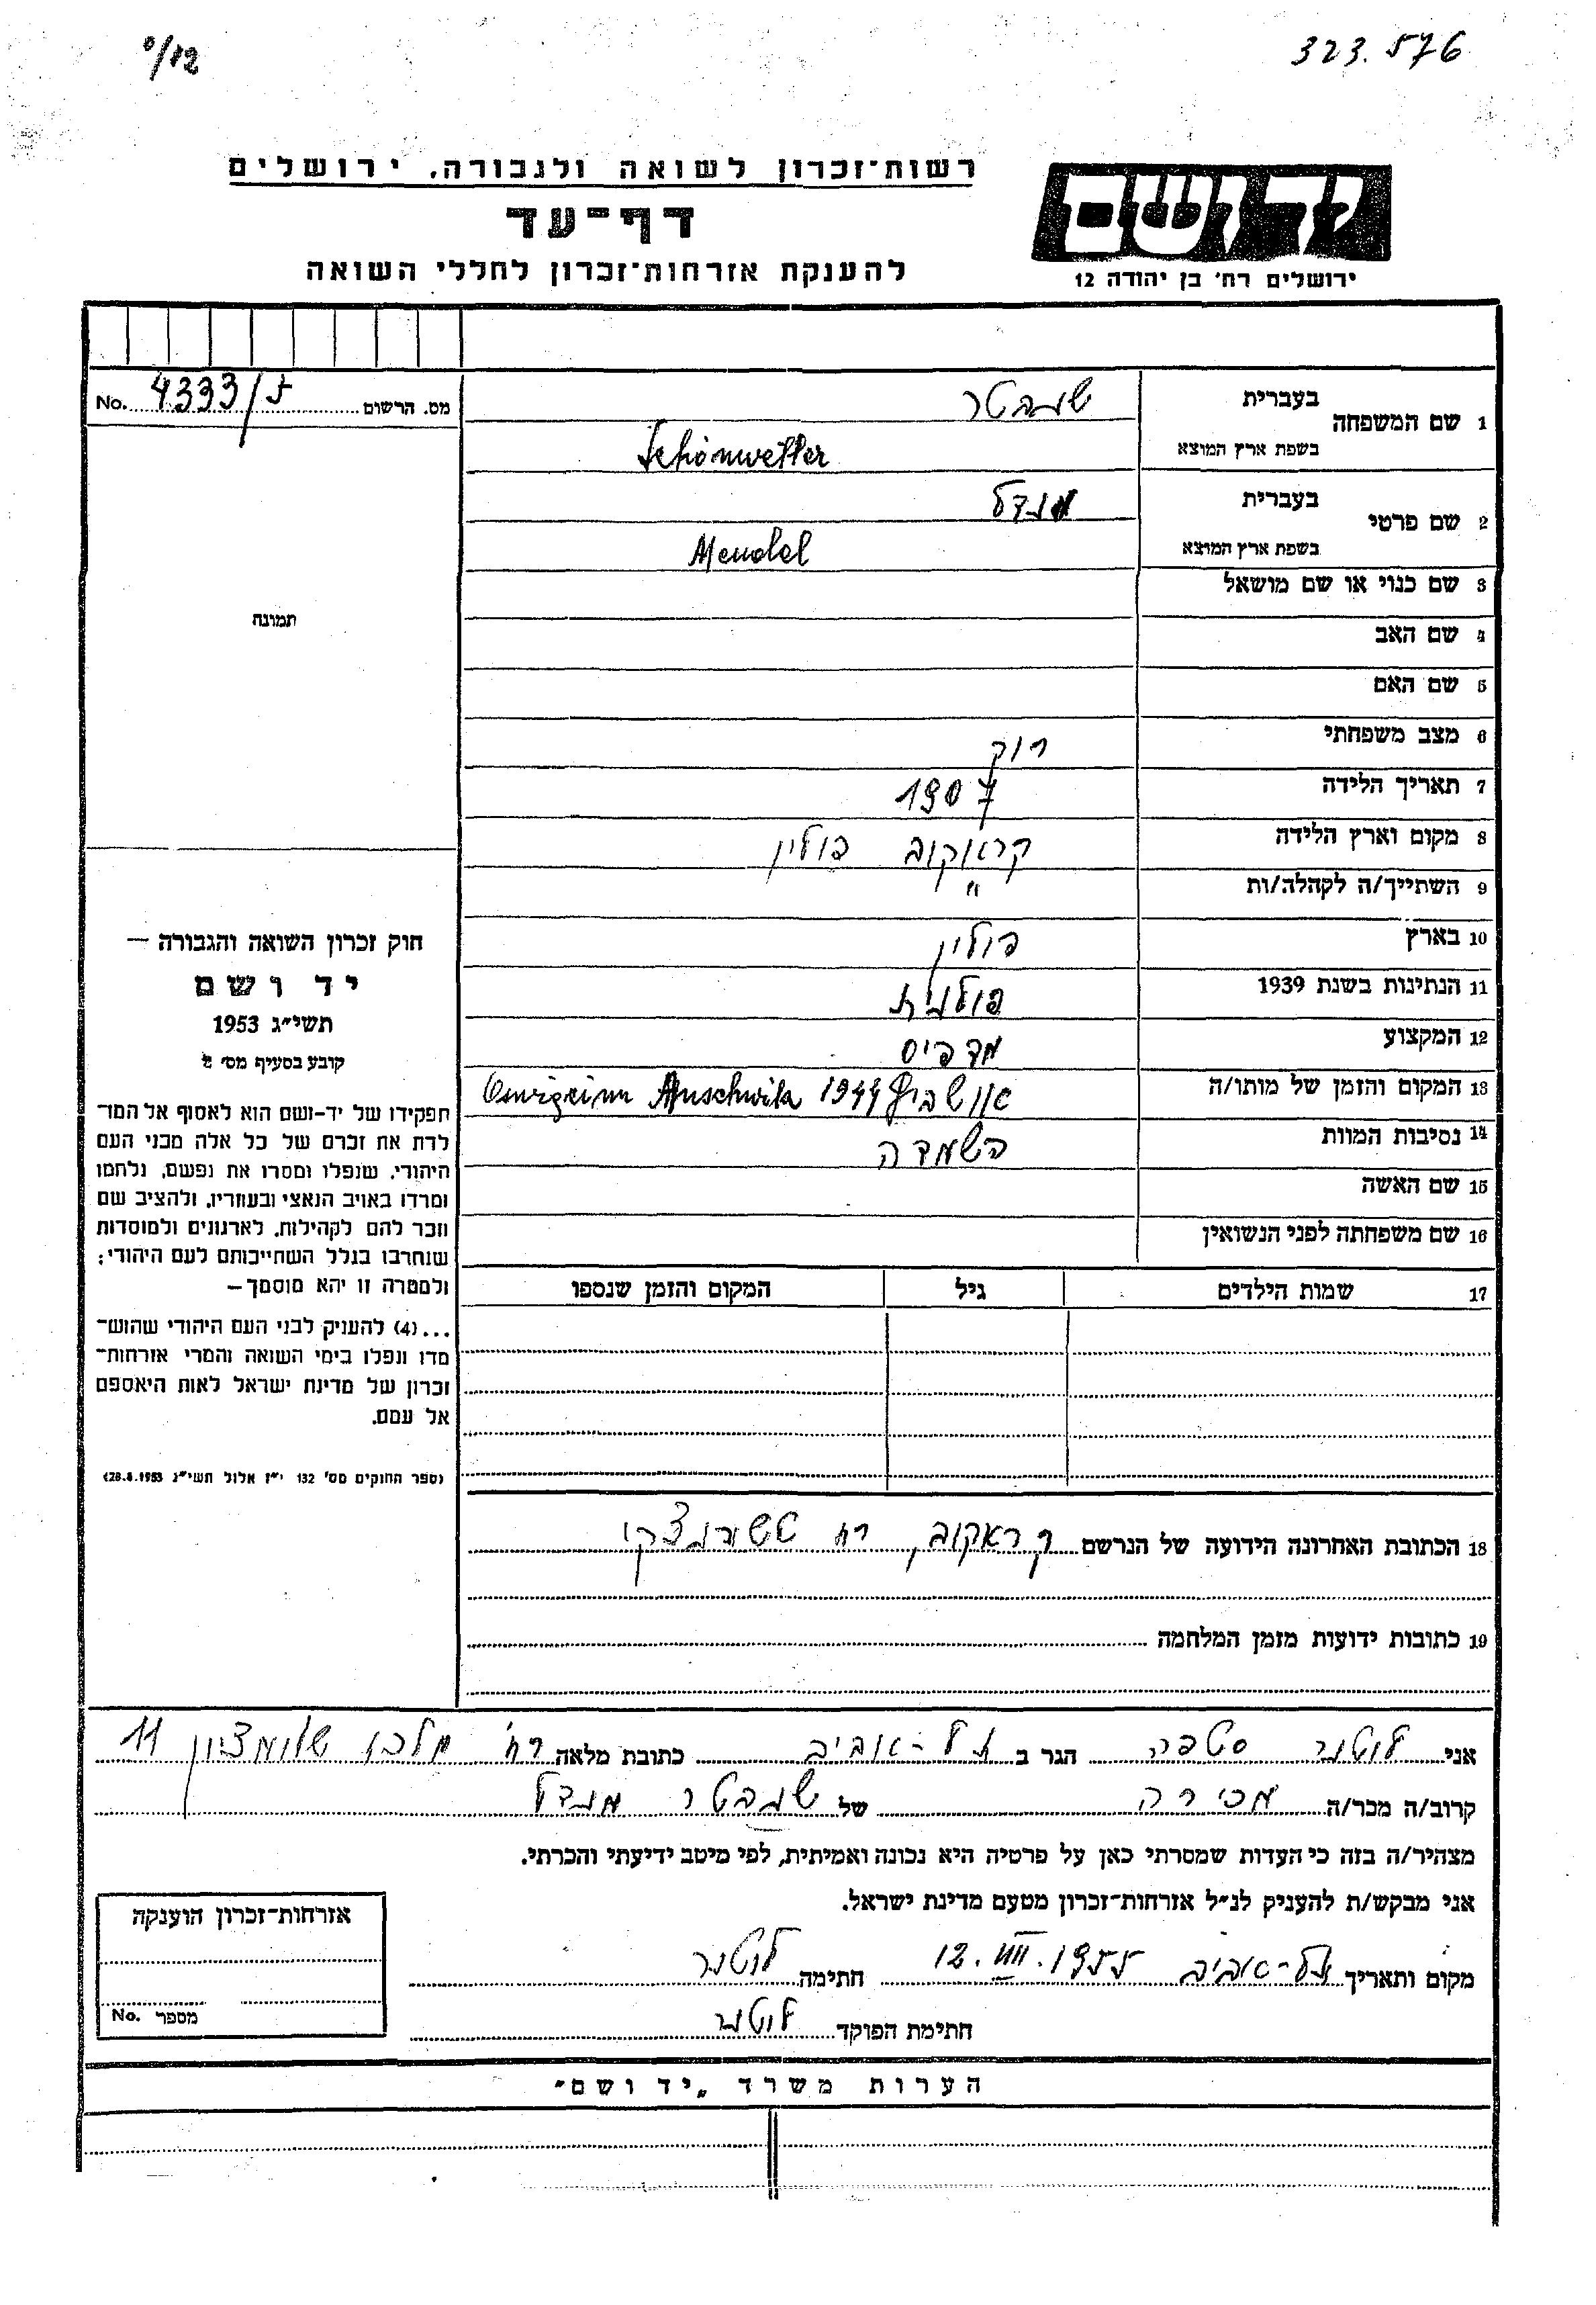 323.576
0/12
יד ושם
רשות־זכרון לשואה ולגבורה, ירושלים
דף־עד
להענקת אזרחות־זכרון לחללי השואה
ירושלים רח׳ בן יהודה 12
מס. הרשום 4333/ No.
1 שם המשפחה בעברית שנבטר
בשפת ארץ המוצא Schönwetter
2 שם פרטי בעברית מנדל
בשפת ארץ המוצא Mendel
3 שם כנוי או שם מושאל
4 שם האב
5 שם האם
6 מצב משפחתי רוק
7 תאריך הלידה 1907
8 מקום וארץ הלידה קראקוב פולין
9 השתייך/ה לקהלה/ות "
10 בארץ פולין
11 הנתינות בשנת 1939 פולנית
12 המקצוע מדפיס
13 המקום והזמן של מותו/ה אושביץ 1944 Auschwitz
14 נסיבות המוות השמדה
15 שם האשה
16 שם משפחתה לפני הנשואין
17 שמות הילדים גיל המקום והזמן שנספו
18 הכתובת האחרונה הידועה של הנרשם קראקוב, רח
19 כתובות ידועות מזמן המלחמה
תמונה
חוק זכרון השואה והגבורה —
יד ושם
תשי״ג 1953
קובע בסעיף מס׳ 2
תפקידו של יד-ושם הוא לאסוף אל המו־
לדת את זכרם של כל אלה מבני העם
היהודי, שנפלו ומסרו את נפשם, נלחמו
ומרדו באויב הנאצי ובעוזריו, ולהציב שם
וזכר להם לקהילות, לארגונים ולמוסדות
שנחרבו בגלל השתייכותם לעם היהודי;
ולמטרה זו יהא מוסמך—
...(4) להעניק לבני העם היהודי שהוש־
מדו ונפלו בימי השואה והמרי אזרחות־
זכרון של מדינת ישראל לאות היאספם
אל עמם.
(ספר החוקים מס׳ 132 י״ז אלול תשי״ג 28.8.1953)
אני לוטנר סטפה הגר ב תל-אביב כתובת מלאה רח׳ מלכי שלומציון 11
קרוב/ה מכר/ה מכירה של שנבטר מנדל
מצהיר/ה בזה כי העדות שמסרתי כאן על פרטיה היא נכונה ואמיתית, לפי מיטב ידיעתי והכרתי.
אני מבקש/ת להעניק לנ״ל אזרחות־זכרון מטעם מדינת ישראל.
מקום ותאריך תל-אביב 12.VIII.1955 חתימה לוטנר
חתימת הפוקד לוטנר
אזרחות־זכרון הוענקה
מספר No.
הערות משרד „יד ושם״